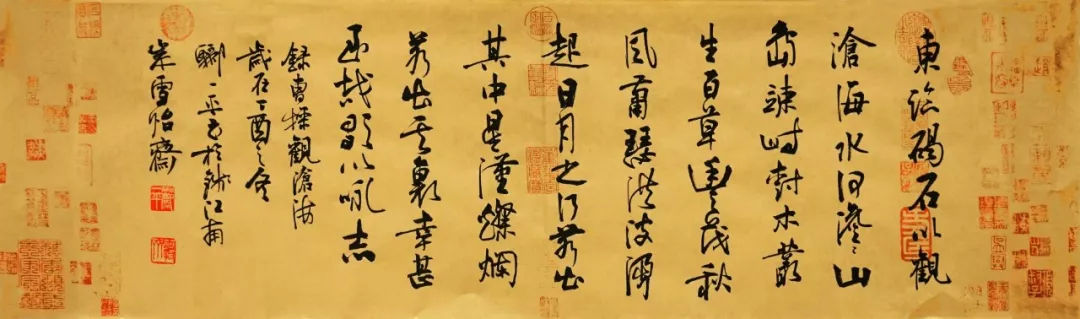 東臨碣石以觀
滄海水何澹山
島竦峙樹木叢
生百草豐茂秋
風蕭瑟洪波湧
起日月之行若出
其中星漢燦爛
若出其裏幸甚
至哉歌以咏志
錄曹操觀滄海
歲在丁酉之冬
一平書於錢江南
岸雪怡齋